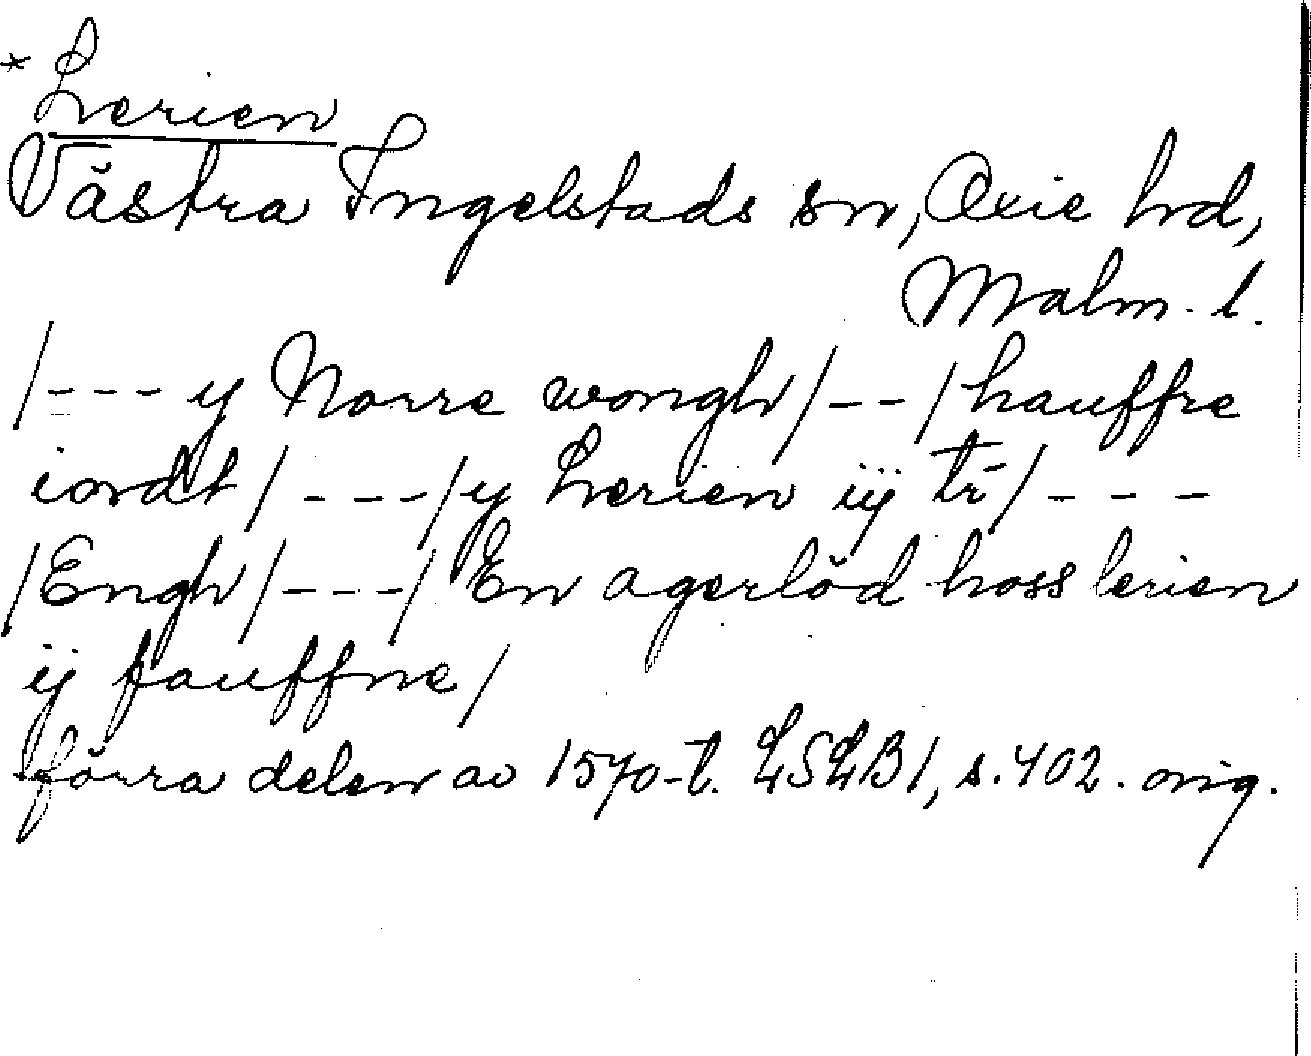 * Lerien
Västra Ingelstads sn, Oxie hd,
Malm. l.
/--- y Norre wongh/--/hauffre
iordt/---/y Lerien iij tr̄/---
/Engh/---/En agerlöd hoss lerien
ij fauffne/
förra delen av 1570-t. LSLB1, s. 402. orig.